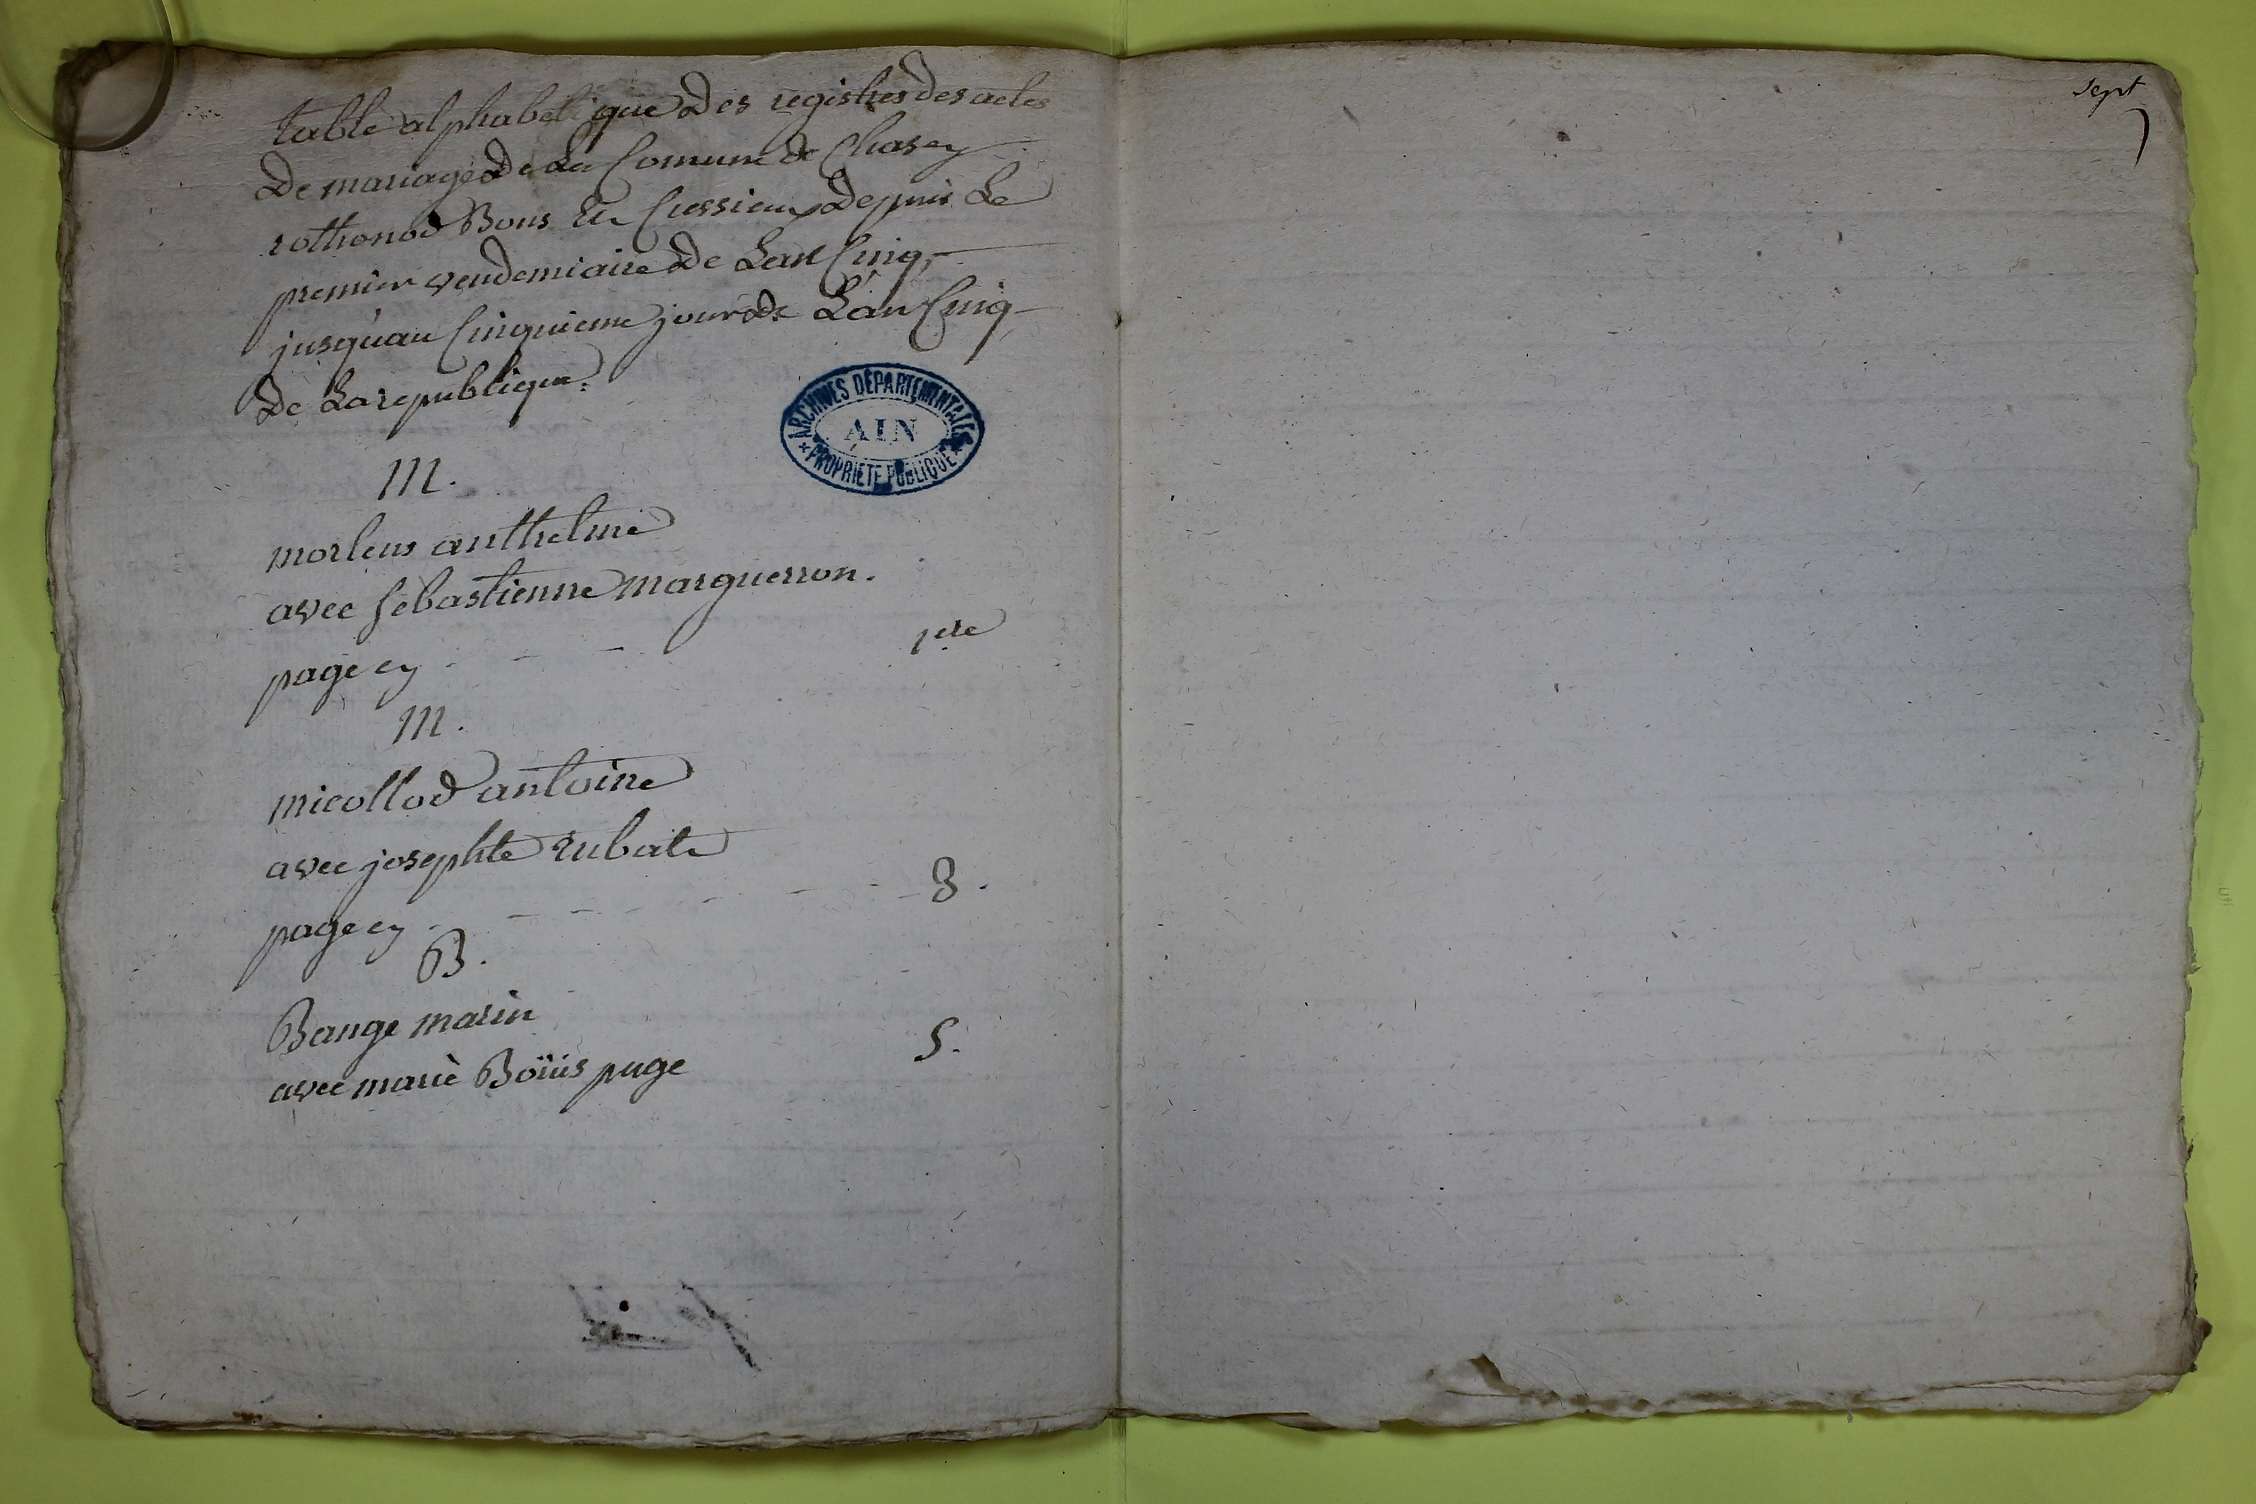 table alphabetique des registres des actes
De mariage De La Comune de Chasey
rothonod Bons Et Cressieux Depuis Le
premier vendemiaire De Lan Cinq
jusqu'au Cinquieme jour de L'an Cinq
De La republique.
ARCHIVES DÉPARTEMENTALES
AIN
PROPRIÉTÉ PUBLIQUE
M.
morlens anthelme
avec sebastienne marguerron.
page ey 1ere
M.
micollod antoine
avec josephte rubate
page ey 3.
B.
Bange marin
avec marie Boüis page 5.
sept
7